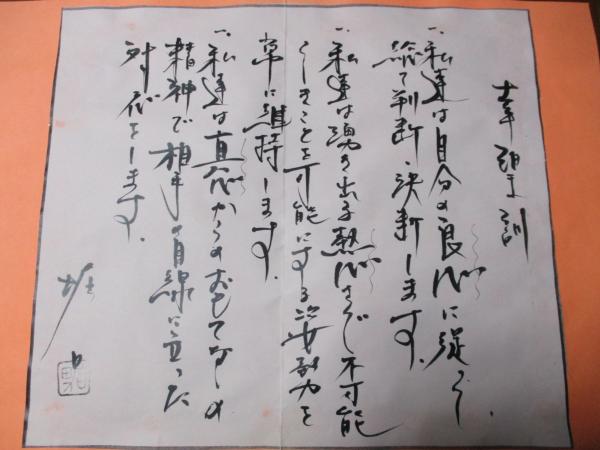 訓
一、私達は自分の良心に従い、
総て判断・決断します。
一、私達は湧き出る熱心さで不可能
らしきことを可能にする忍耐力を
常に維持します。
一、私達は真心からのおもてなしの
精神で相手の目線に立った
対応をします。
堀